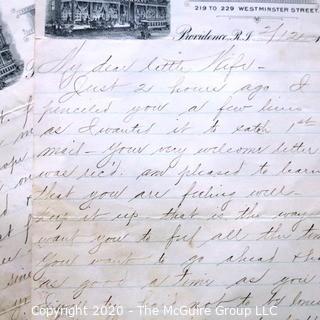 219 TO 229 WESTMINSTER STREET.
Providence, R.I. 2/12
My dear little Wife -
Just 2 hours ago I
penciled you a few lines
as I wanted it to catch 1st
mail - Your very welcome letter
was rec'd. and pleased to learn
that you are feeling well -
Keep it up - that is the way I
want you to feel all the time
You want to go ahead & have
as good a time as you
not to be
Copyright © 2020 - The McGuire Group LLC